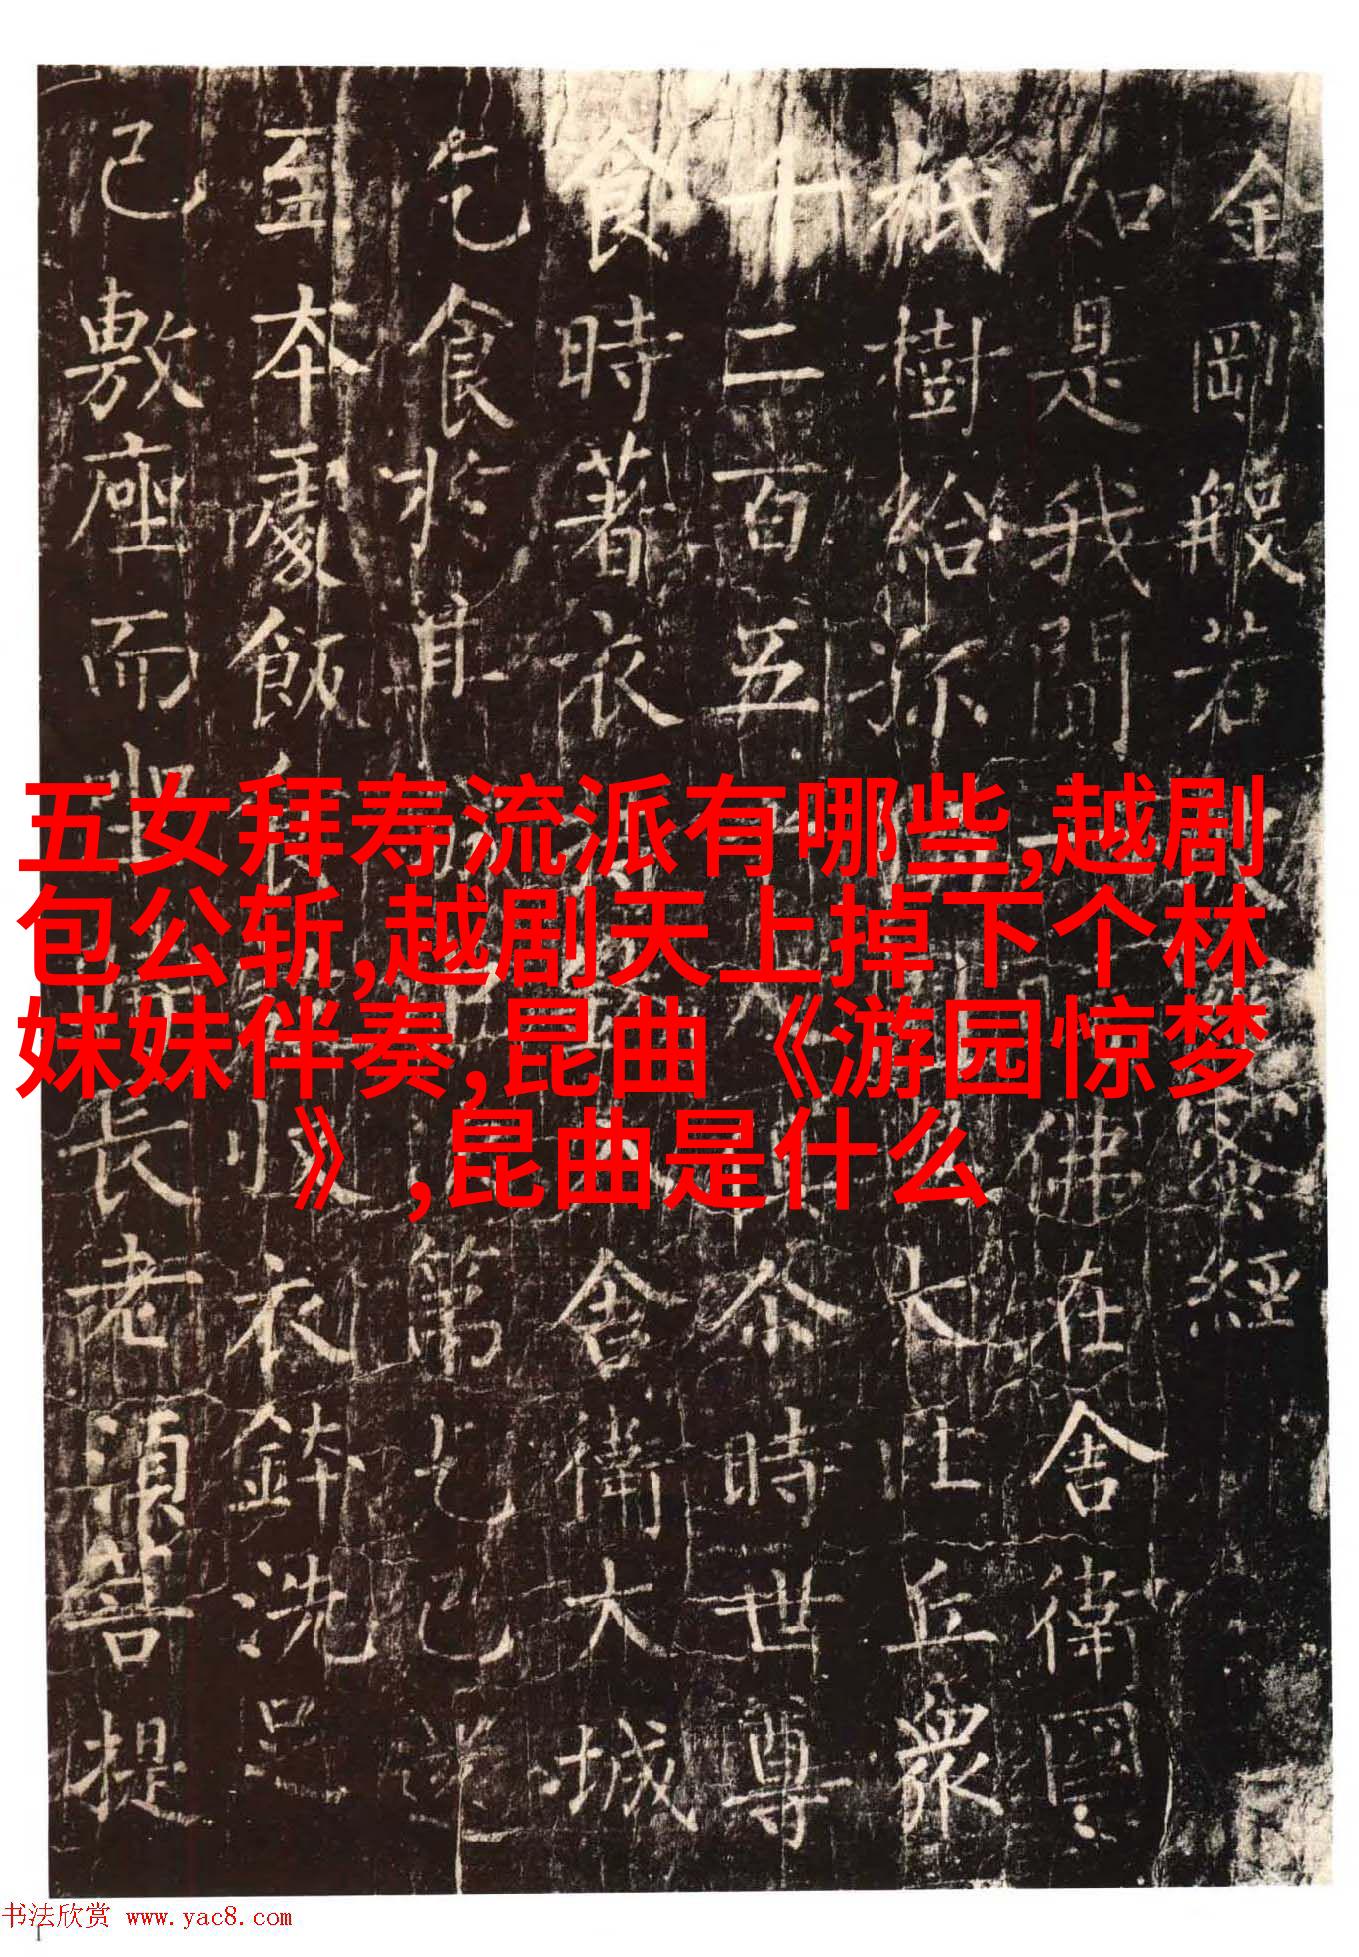 五女拜寿流派有哪些,越剧
包公斩,越剧天上掉下个林
妹妹伴奏,昆曲《游园惊梦
》,昆曲是什么
金剛般若蜜經
如是我聞一佛在舍衛國
祇樹給孤大比丘衆
千二百五尒時世尊
食時著衣舍衛大城
乞食於其第乞已還
至本處飯食收衣鉢洗足
已敷座而坐長老須菩提
书法欣赏 www.yac8.com